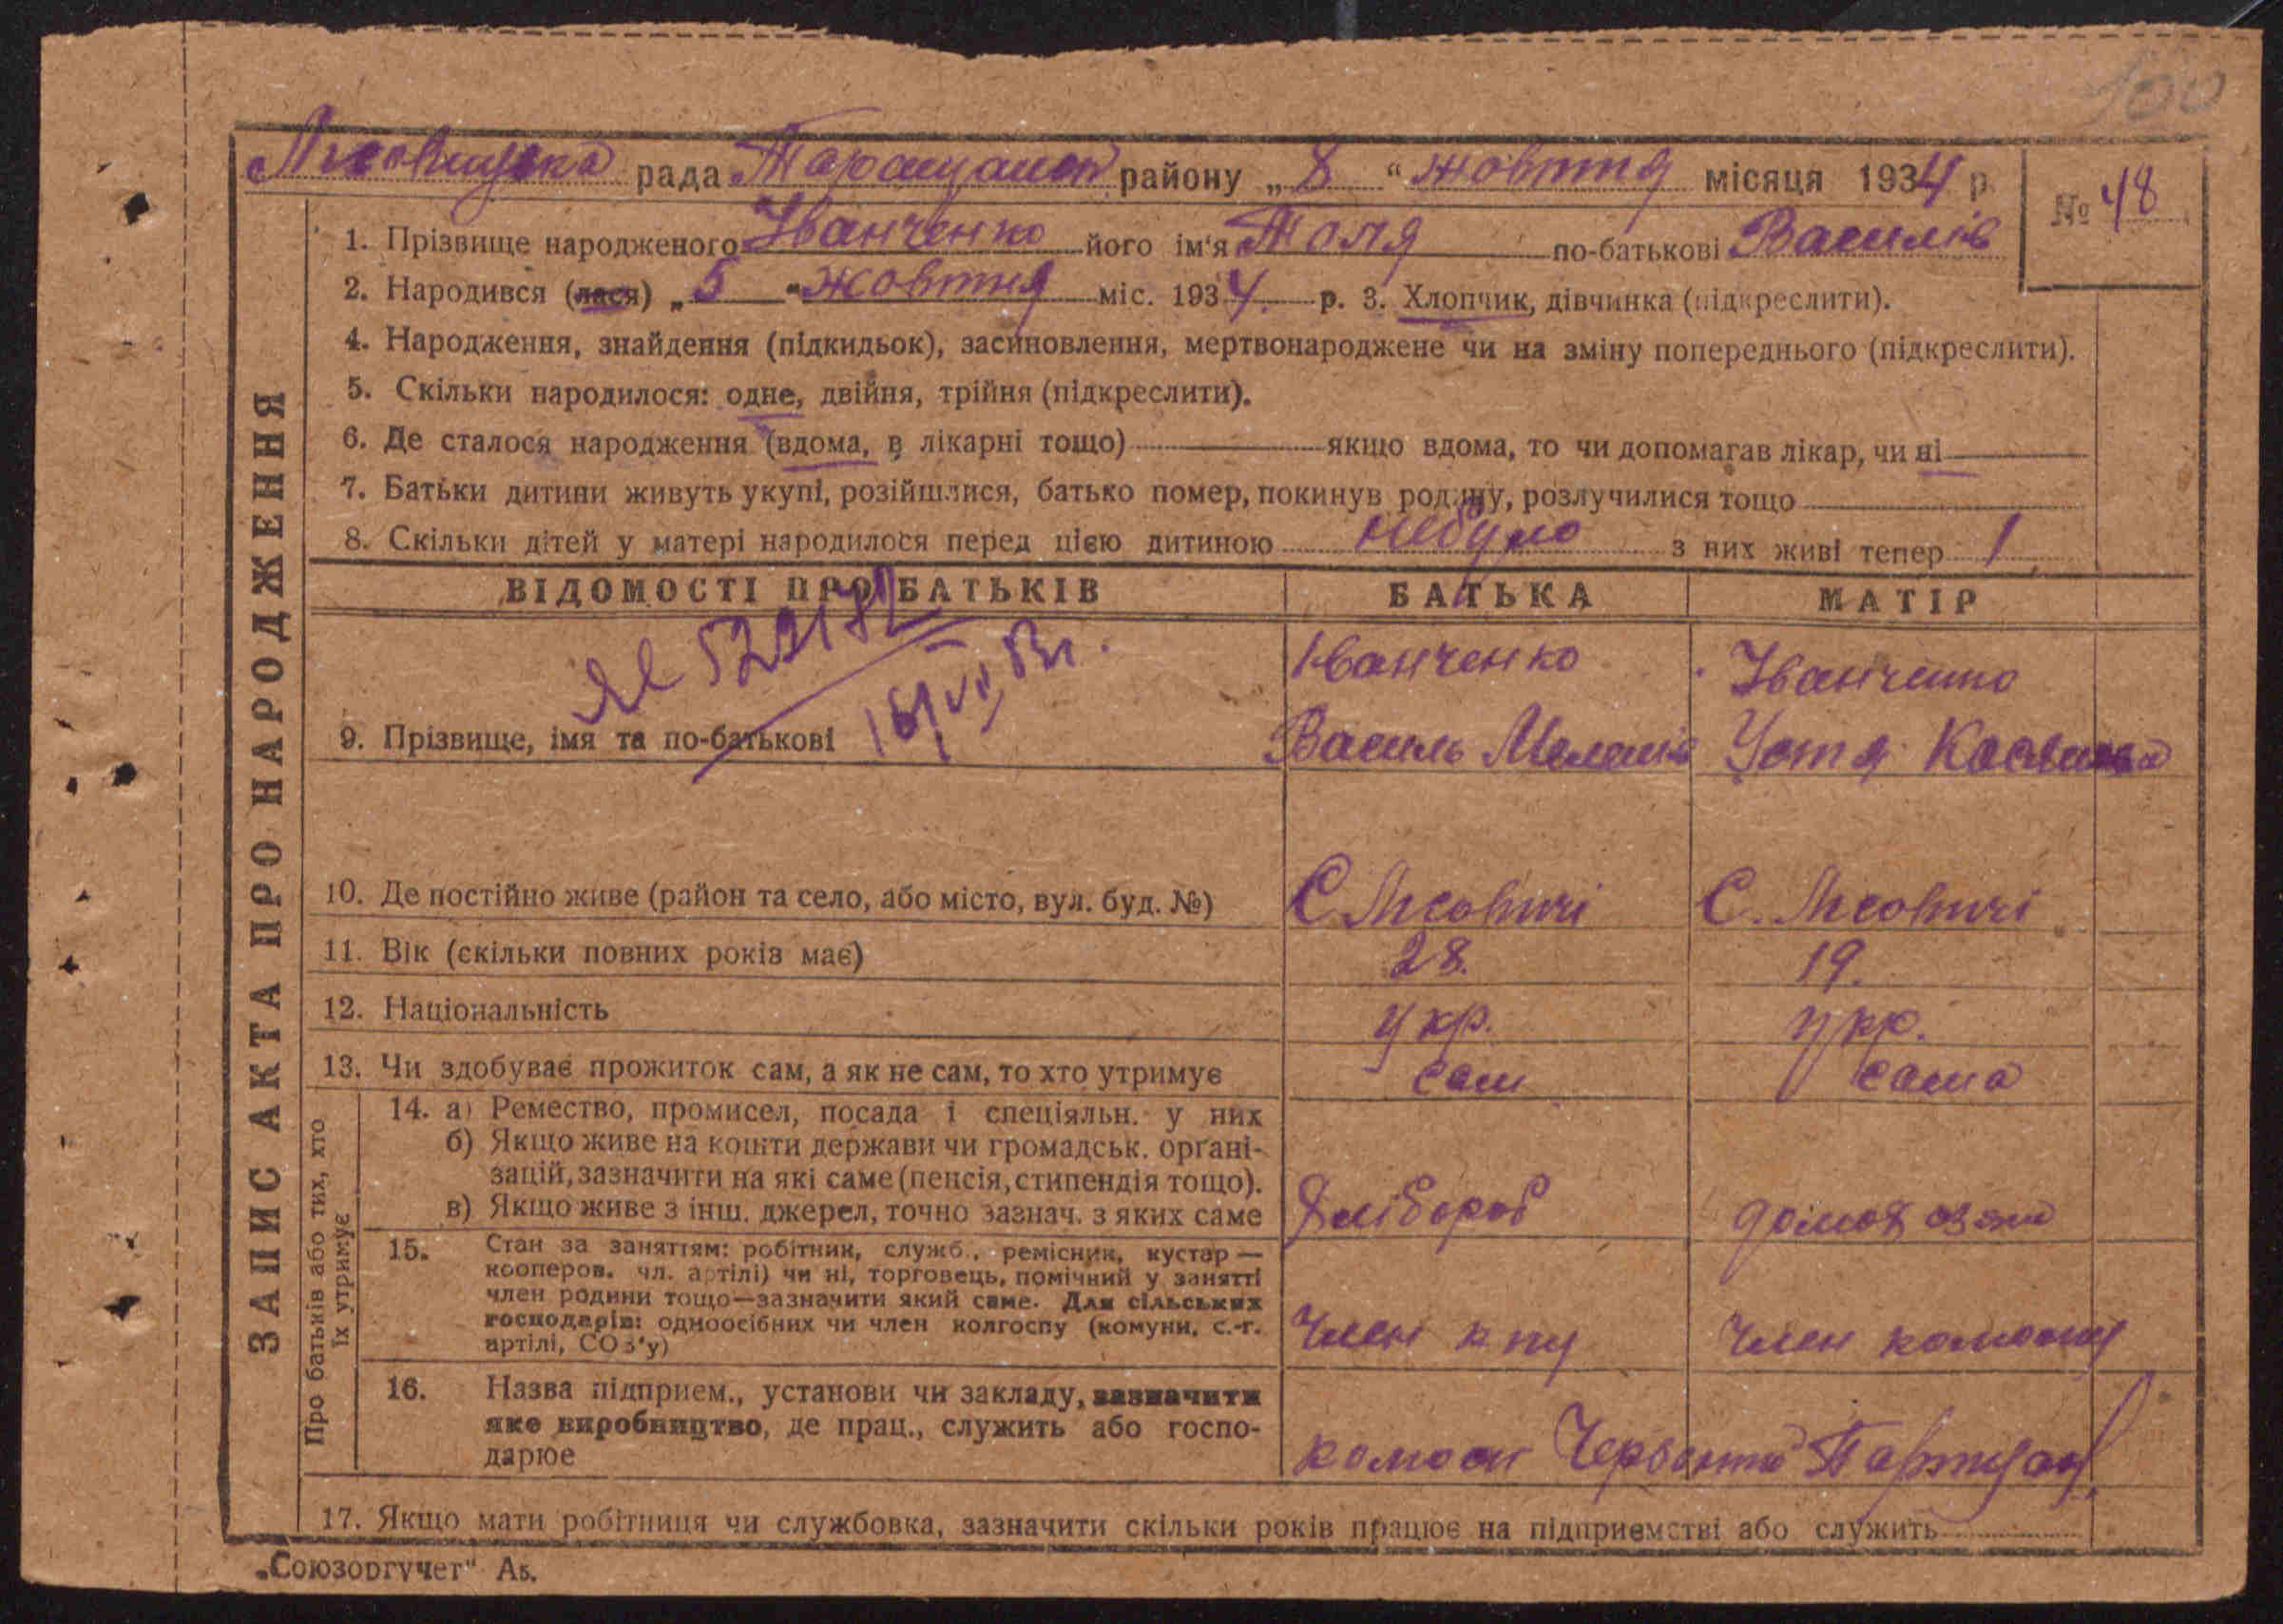 100
Лісовицька рада Таращанськ району „ 8 “ жовтня місяця 1934 р.
№ 48
1. Прізвище народженого Іванченко його ім'я Толя по-батькові Василів
2. Народився (лася) „ 5 “ жовтня міс. 1934. р. 3. Хлопчик, дівчинка (підкреслити).
4. Народження, знайдення (підкидьок), засиновлення, мертвонароджене чи на зміну попереднього (підкреслити).
5. Скільки народилося: одне, двійня, трійня (підкреслити).
6. Де сталося народження (вдома, в лікарні тощо) якщо вдома, то чи допомагав лікар, чи ні
7. Батьки дитини живуть укупі, розійшлися, батько помер, покинув родину, розлучилися тощо
8. Скільки дітей у матері народилося перед цією дитиною небуло з них живі тепер 1
ВІДОМОСТІ ПРО БАТЬКІВ БАТЬКА МАТІР
16/VII 53г.
9. Прізвище, імя та по-батькові
Іванченко Іванченко
Василь Устя
10. Де постійно живе (район та село, або місто, вул. буд. №) С. Лісовичі С. Лісовичі
11. Вік (скільки повних років має) 28. 19.
12. Національність укр. укр.
13. Чи здобуває прожиток сам, а як не сам, то хто утримує сам сама
14. а) Ремество, промисел, посада і спеціяльн. у них
б) Якщо живе на кошти держави чи громадськ. орґані-
зацій, зазначити на які саме (пенсія, стипендія тощо).
в) Якщо живе з інш. джерел, точно зазнач. з яких саме Хлібороб домохозяй
15. Стан за заняттям: робітник, служб., ремісник, кустар —
кооперов. чл. артілі) чи ні, торговець, помічний у занятті
член родини тощо—зазначити який саме. Для сільських
господарів: одноосібних чи член колгоспу (комуни, с.-г.
артілі, СОЗ'у) Член член колгоспу
16. Назва підприєм., установи чи закладу, зазначити
яке виробництво, де прац., служить або госпо-
дарює колгосп Червоний Партизан
17. Якщо мати робітниця чи службовка, зазначити скільки років працює на підприємстві або служить
ЗАПИС АКТА ПРО НАРОДЖЕННЯ
Про батьків або тих, хто
їх утримує
„Союзоргучет“ А5.